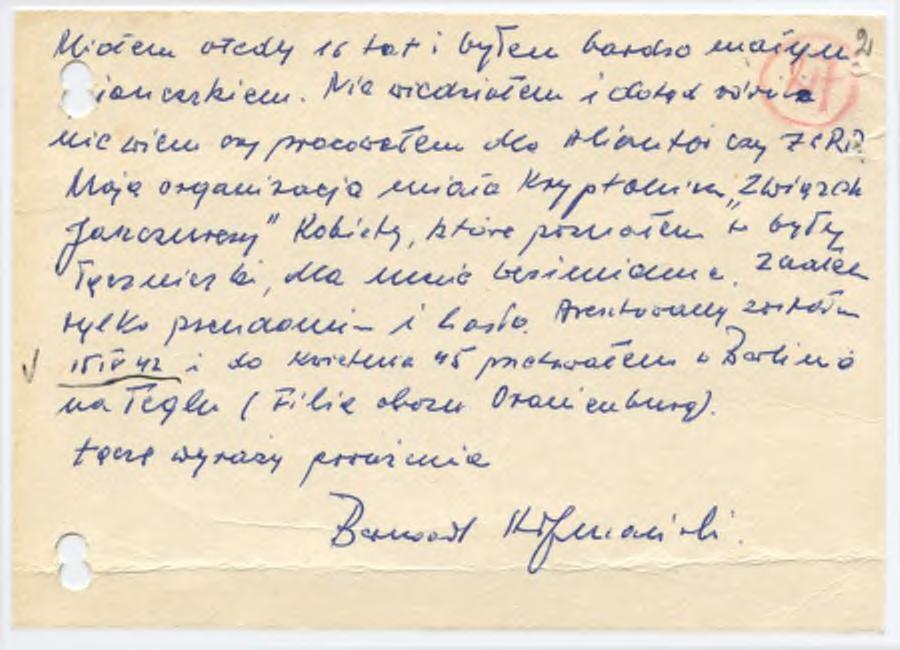 2
47
Miałem wtedy 16 lat i byłem bardzo małym
pioneczkiem. Nie wiedziałem i dotąd również
nie wiem czy pracowałem dla Aliantów czy ZSRR?
Moja organizacja miała Kryptonim „Związek
Jaszczurczy" Kobiety, które poznałem to były
łączniczki, dla mnie bezimienne. Znałem
tylko pseudonim i hasło. Aresztowany zostałem
15 IV 42 i do kwietnia 45 przetrwałem w Berlinie
na Teglu (Filia obozu Oranienburg).
Łączę wyrazy poważania
Bernard